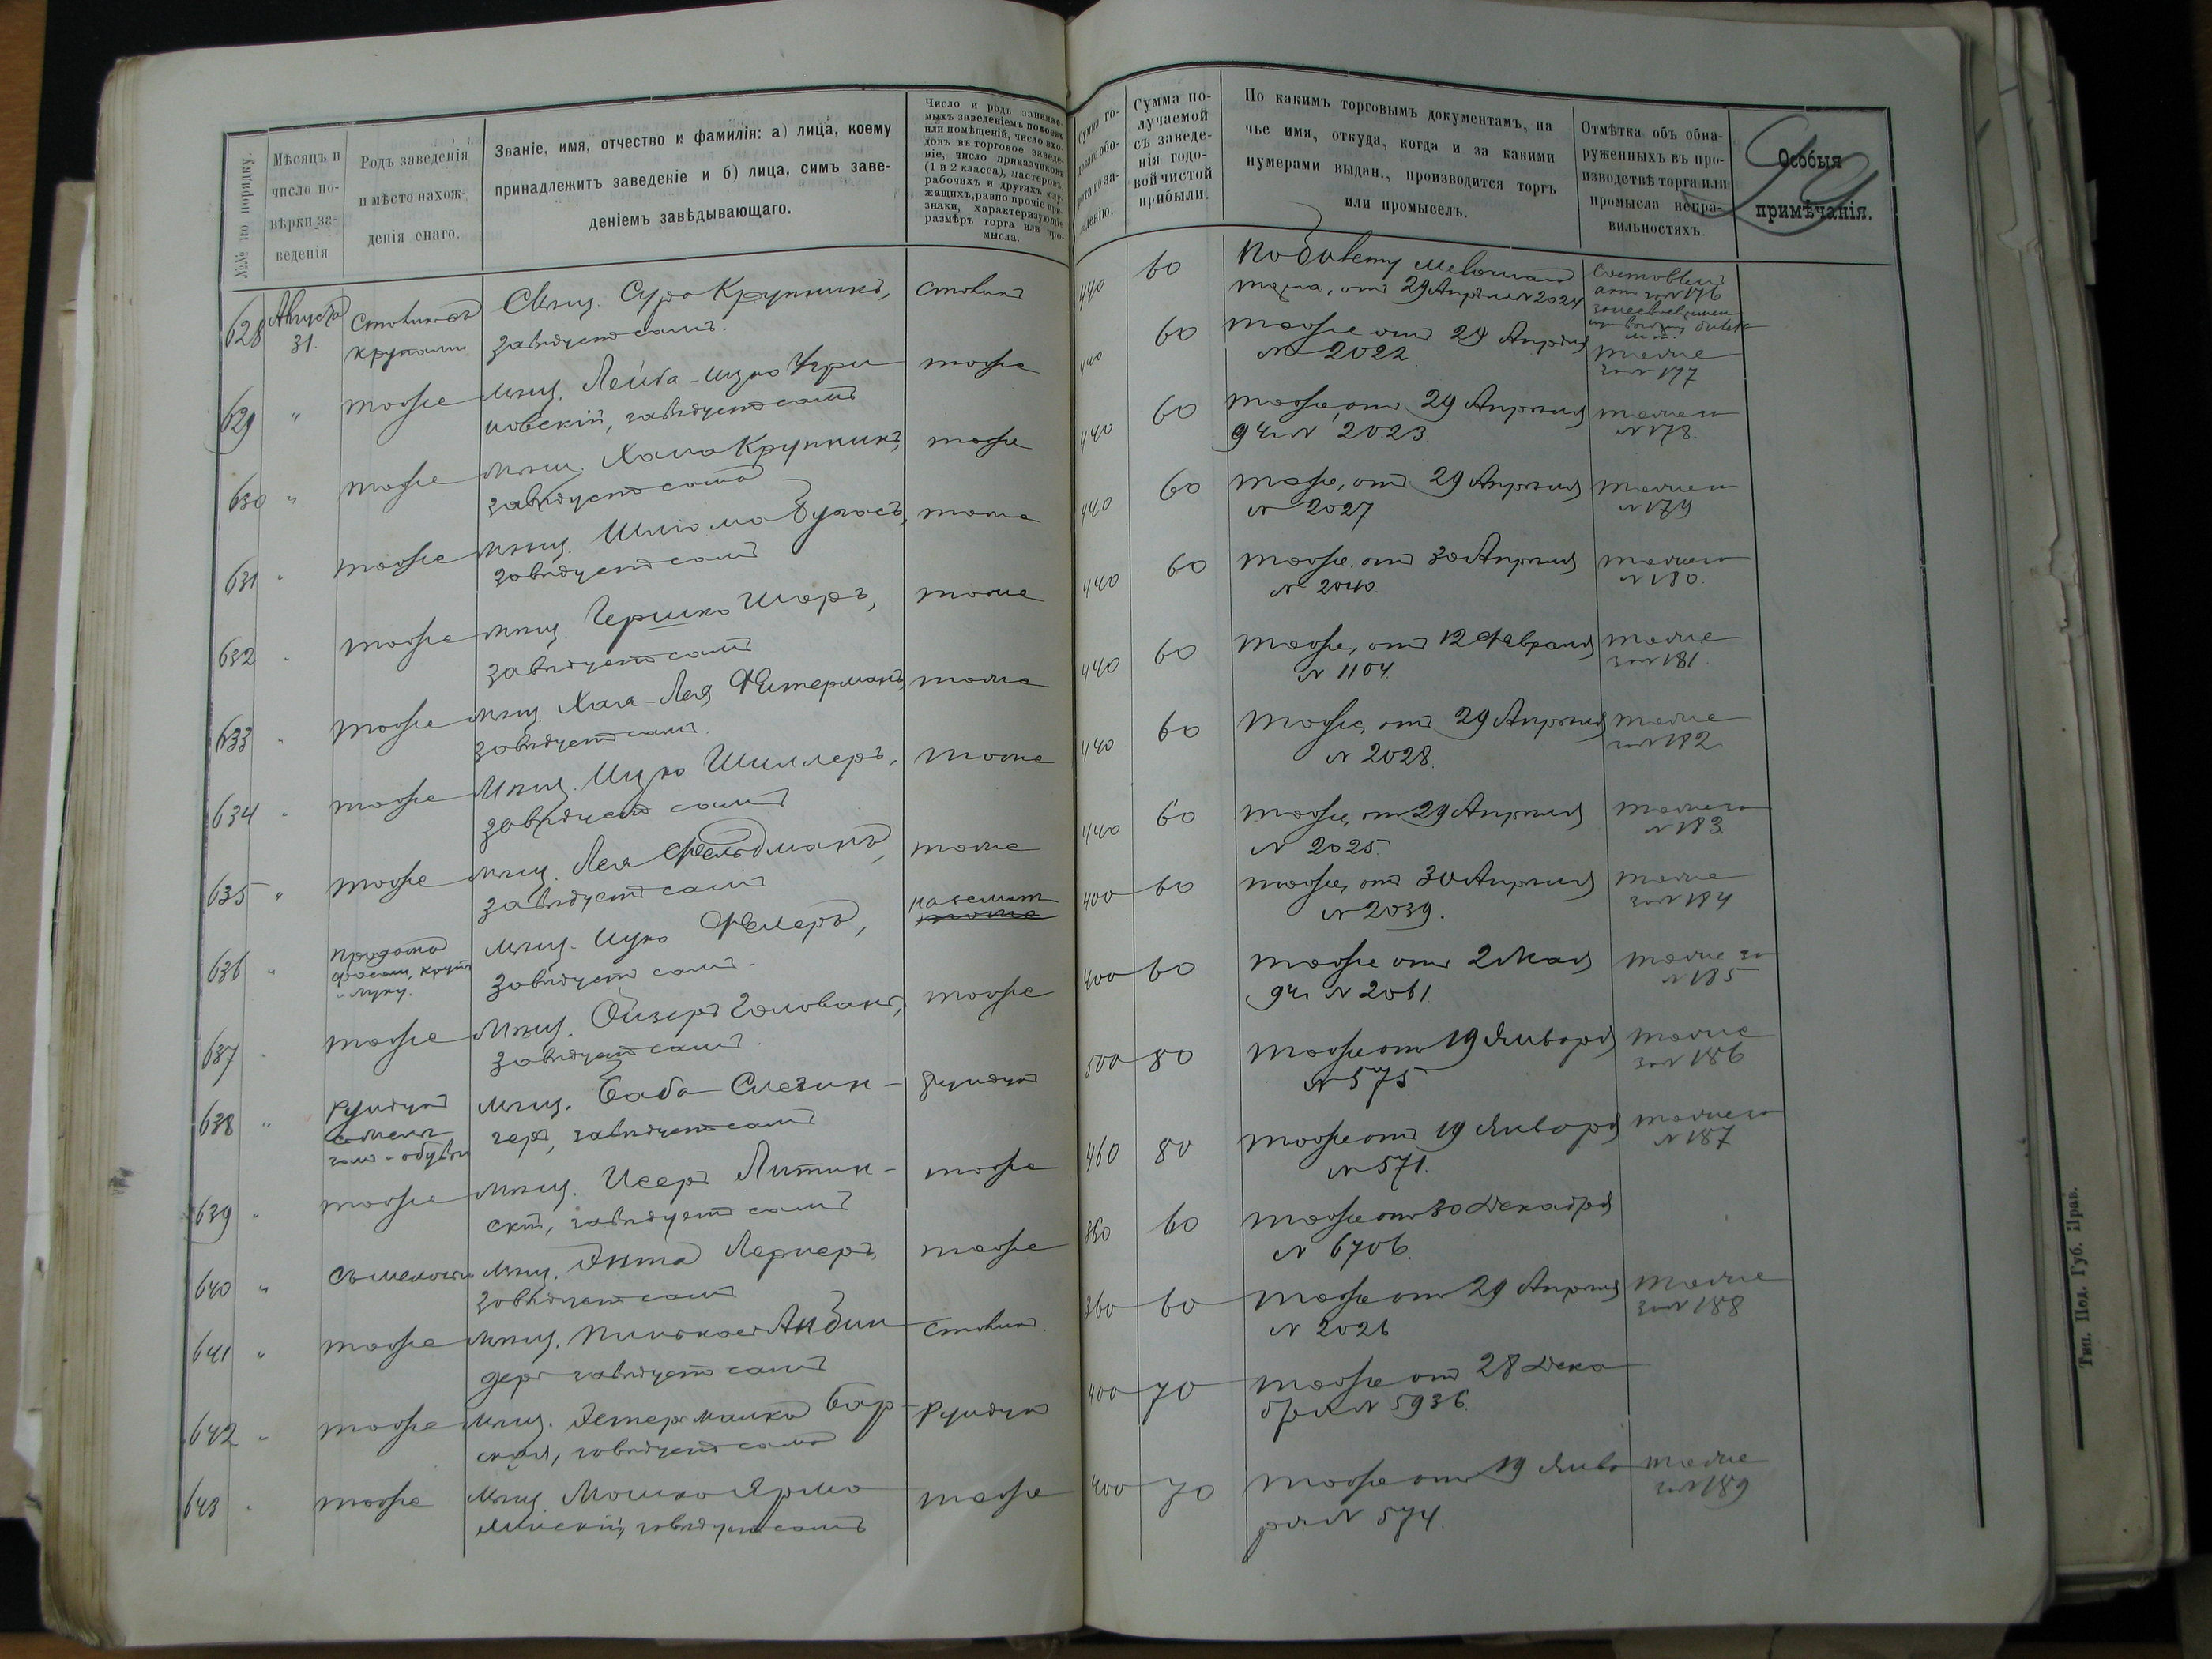 №№ по порядку.
Мѣсяцъ и
число по-
вѣрки за-
веденія
Родъ заведенія
и мѣсто нахож-
денія онаго.
Званіе, имя, отчество и фамилія: а) лица, коему
принадлежитъ заведеніе и б) лица, симъ заве-
деніемъ завѣдывающаго.
Число и родъ занимае-
мыхъ заведеніемъ покоевъ
или помѣщеній, число вхо-
довъ въ торговое заведе-
ніе, число приказчиковъ
(1 и 2 класса), мастеровъ,
рабочихъ и другихъ слу-
жащихъ, равно прочіе при-
знаки, характеризующіе
размѣръ торга или про-
мысла.
Сумма го-
дового обо-
рота по за-
веденію.
Сумма по-
лучаемой
съ заведе-
нія годо-
вой чистой
прибыли.
По какимъ торговымъ документамъ, на
чье имя, откуда, когда и за какими
нумерами выдан., производится торгъ
или промыселъ.
Отмѣтка объ обна-
руженныхъ въ про-
изводствѣ торга или
промысла непра-
вильностяхъ.
Особыя
примѣчанія.
628 Августа 31. Столикъ съ крупами
Мѣщ. Сура Крупникъ,
завѣдуетъ сама.
столикъ
440 60
по билету мелочнаго
торга, отъ 29 Апрѣля № 2024
актъ за № 176
629 " тоже
Мѣщ. Лейба-Ицко Чер-
новскій, завѣдуетъ самъ
тоже
440 60
тоже отъ 29 Апрѣля
№ 2022
тоже
за № 177
630 " тоже
Мѣщ. Хана Крупникъ,
завѣдуетъ сама
тоже
440 60
тоже, отъ 29 Апрѣля
№ 2023.
тоже за
№ 178.
631 " тоже
Мѣщ. Шлиома
завѣдуетъ самъ
тоже
440 60
тоже, отъ 29 Апрѣля
№ 2027
тоже за
№ 179
632 " тоже
Мѣщ. Гершко Шоръ,
завѣдуетъ самъ
тоже
440 60
тоже отъ 30 Апрѣля
№ 2040.
тоже за
№ 180.
633 " тоже
Мѣщ. Хая-Лея Фитерманъ,
завѣдуетъ сама.
тоже
440 60
тоже, отъ 12 Февраля
№ 1104.
тоже
за № 181.
634 " тоже
Мѣщ. Ицко Шиллеръ,
завѣдуетъ самъ
тоже
440 60
тоже, отъ 29 Апрѣля
№ 2028.
тоже
за № 182
635 " тоже
Мѣщ. Лея Фельдманъ,
завѣдуетъ сама
тоже
440 60
тоже, отъ 29 Апрѣля
№ 2025.
тоже за
№ 183
636 " крупъ
и муку.
Мѣщ. Ицко Фелеръ,
завѣдуетъ самъ.
400 60
тоже, отъ 30 Апрѣля
№ 2039.
тоже
за № 184
637 " тоже
Мѣщ. Ойзеръ Голованъ,
завѣдуетъ самъ.
тоже
400 60
тоже отъ 2 Мая
№ 2061.
тоже за
№ 185
638 " рундукъ
обувью
Мѣщ. Баба Слезин-
геръ, завѣдуетъ сама
рундукъ
500 80
тоже отъ 19 Января
№ 575
тоже
за № 186
639 " тоже
Мѣщ. Исеръ Литин-
скій, завѣдуетъ самъ
тоже
460 80
тоже отъ 19 Января
№ 571.
тоже за
№ 187
640 "
Мѣщ. Энта Лернеръ,
завѣдуетъ сама
тоже
360 60
тоже отъ 30 Декабря
№ 6706.
641 " тоже
Мѣщ. Пинькас
завѣдуетъ самъ
столикъ.
360 60
тоже отъ 29 Апрѣля
№ 2026
тоже
за № 188
642 " тоже
Мѣщ. Эстер Малка Бар-
ская, завѣдуетъ сама
рундукъ
400 70
тоже отъ 28 Дека
бря № 5936.
643 " тоже
Мѣщ. Мошко Ярмо
линскій, завѣдуетъ самъ
тоже
400 70
тоже отъ 19 Янва
ря № 574.
тоже
за № 189
Тип. Под. Губ. Прав.